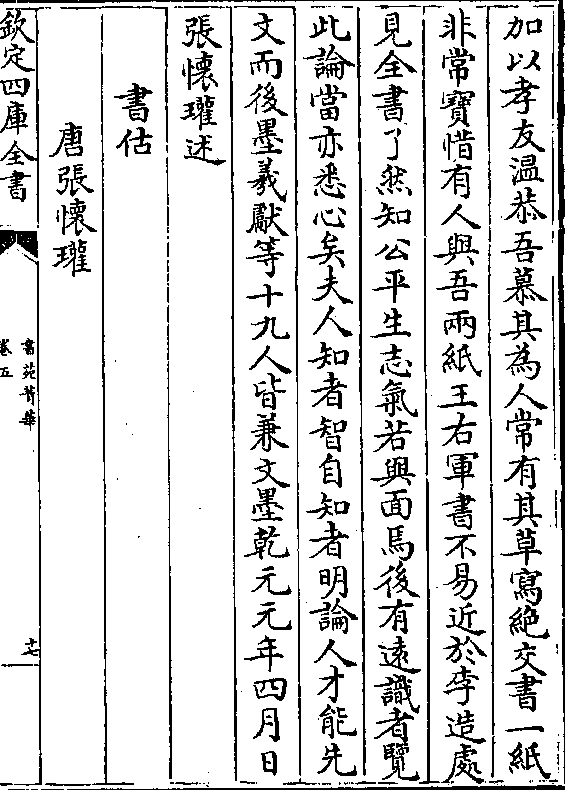 加以孝友温恭吾慕其為人常有其草寫絶交書一紙
非常寶惜有人與吾兩紙王右軍書不易近於李造處
見全書了然知公平生志氣若與面焉後有遠識者覽
此論當亦悉心矣夫人知者智自知者明論人才能先
文而後墨羲獻等十九人皆兼文墨乾元元年四月日
張懷瓘述
書估
唐張懷瓘
欽定四庫全書
書苑菁華
卷五
十七